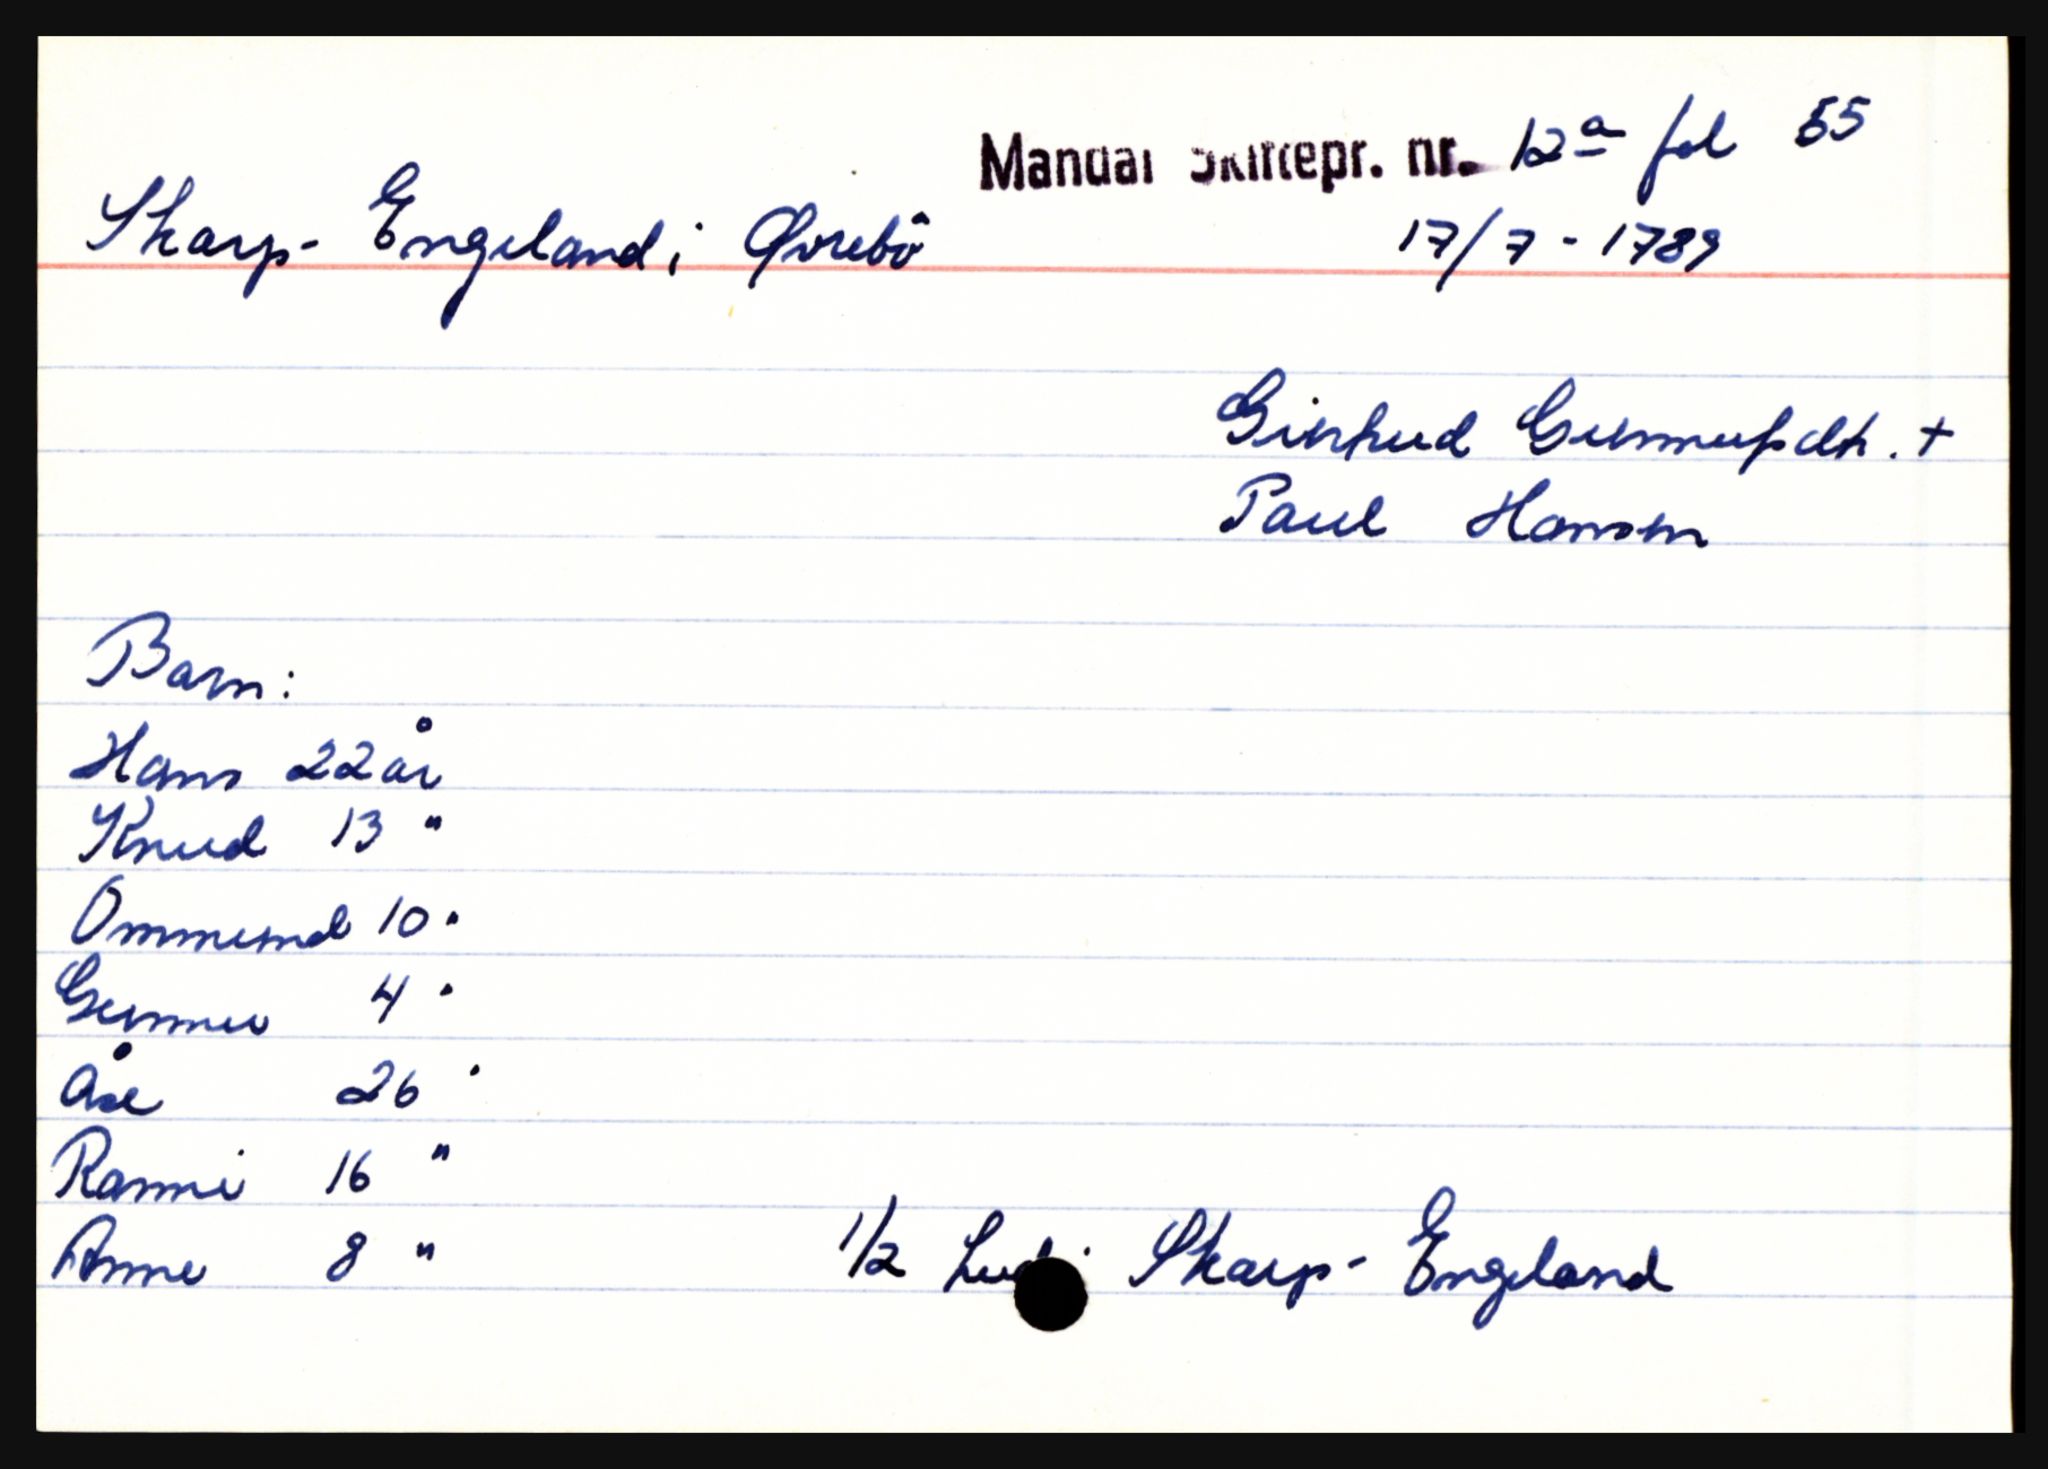 Mandal Skiftepr. nr. 12a fol 55
Skarp-Engeland i Øvrebö 17/7-1789
Girtrud Gunnufsdtr. +
Paul Hansen
Barn:
Hans 22 år
Knud 13 "
Ommund 10 "
Gunnu 4 "
Åse 26 "
Ranni 16 "
Anne 8 "
1/2 i Skarp-Engeland